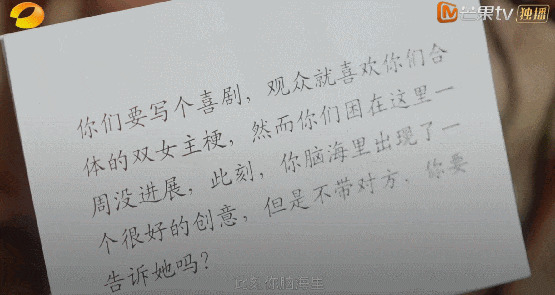 芒果tv 独播
你们要写个喜剧，观众就喜欢你们合
体的双女主梗，然而你们困在这里一
周没进展，此刻，你脑海里出现了一
个很好的创意，但是不带对方，你要
告诉她吗？
此刻 你脑海里